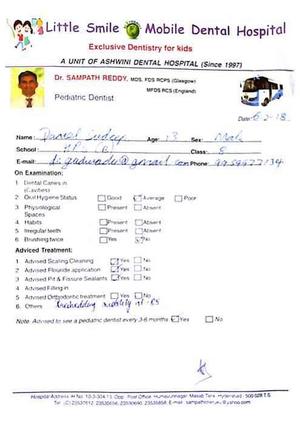 Little Smile Mobile Dental Hospital
Exclusive Dentistry for kids
A UNIT OF ASHWINI DENTAL HOSPITAL (Since 1997)
Dr. SAMPATH REDDY, MDS, FDS RCPS (Glasgow)
MFDS RCS (England)
Pediatric Dentist
Date: 6-2-18
Name: Age: 13 Sex: Male
School: Class:
E-mail: @gmail.com Phone:
On Examination:
1 Dental Caries in (Cavities)
2 Oral Hygiene Status Good Average Poor
3 Physiological Spaces Present Absent
4 Habits Present Absent
5 Irregular teeth Present Absent
6 Brushing twice Yes No
Adviced Treatment:
1 Advised Scaling Cleaning Yes No
2 Advised Flouride application Yes No
3 Advised Pit & Fissure Sealants Yes No
4 Advised Filling in
5 Advised Orthodontic treatment Yes No
6 Others
Note: Advised to see a pediatric dentist every 3-6 months Yes No